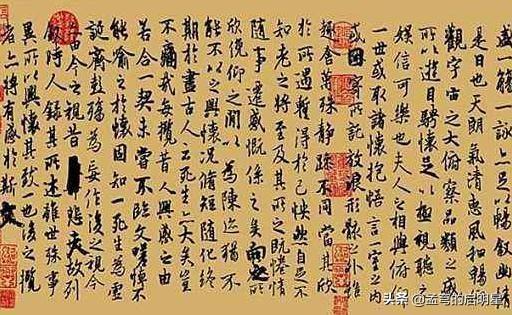 盛一觴一詠亦足以暢敘幽情
是日也天朗氣清惠風和暢仰
觀宇宙之大俯察品類之盛
所以遊目騁懷足以極視聽之
娛信可樂也夫人之相與俯仰
一世或取諸懷抱悟言一室之內
或因寄所託放浪形骸之外雖
趣舍萬殊靜躁不同當其欣
於所遇暫得於己怏然自足不
知老之將至及其所之既惓情
隨事遷感慨係之矣向之所
欣俛仰之閒以為陳迹猶不
能不以之興懷況脩短隨化終
期於盡古人云死生亦大矣豈
不痛哉每攬昔人興感之由
若合一契未嘗不臨文嗟悼不
能喻之於懷固知一死生為虛
誕齊彭殤為妄作後之視今
亦由今之視昔悲夫故列
敘時人錄其所述雖世殊事
異所以興懷其致一也後之攬
者亦將有感於斯文
头条 @孟穹的启明星